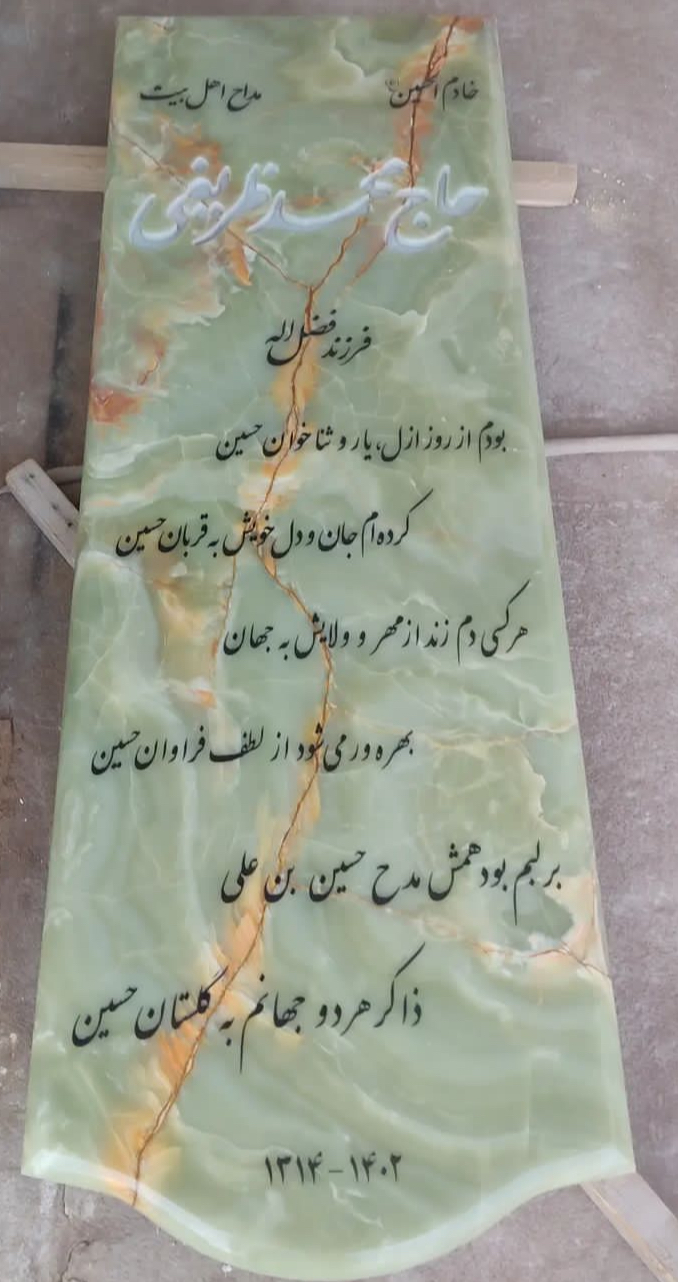 خادم الحسین (ع) مداح اهل بیت
حاج محمد نظریفی
فرزند فضل اله
بودم از روز ازل، یار و ثنا خوان حسین
کرده‌ام جان و دل خویش به قربان حسین
هر کسی دم زند از مهر و ولایش به جهان
بهره ور می‌شود از لطف فراوان حسین
بر لبم بود همش مدح حسین بن علی
ذاکر هر دو جهانم به گلستان حسین
۱۳۱۴ - ۱۴۰۲